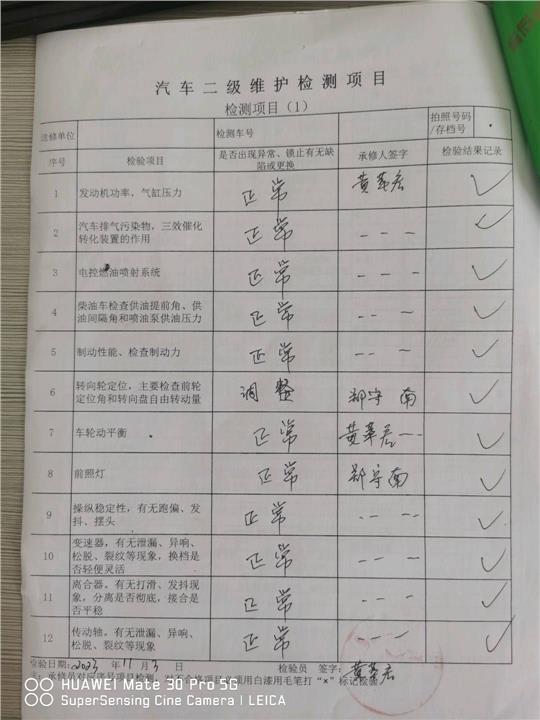 汽车二级维护检测项目
检测项目（1）
送修单位 检测车号 拍照号码/存档号
序号 检验项目 是否出现异常、锁止有无缺陷或更换 承修人签字 检验结果记录
1 发动机功率，气缸压力 正常 黄革宏 ✓
2 汽车排气污染物，三效催化转化装置的作用 正常 - - - ✓
3 电控燃油喷射系统 正常 - - - ✓
4 柴油车检查供油提前角、供油间隔角和喷油泵供油压力 正常 - - - ✓
5 制动性能、检查制动力 正常 - - - ✓
6 转向轮定位，主要检查前轮定位角和转向盘自由转动量 调整 郑守南 ✓
7 车轮动平衡 正常 黄革宏 - - ✓
8 前照灯 正常 郑守南 ✓
9 操纵稳定性，有无跑偏、发抖、摆头 正常 - - - ✓
10 变速器，有无泄漏、异响、松脱、裂纹等现象，换档是否轻便灵活 正常 - - - ✓
11 离合器。有无打滑、发抖现象，分离是否彻底，接合是否平稳 正常 - - - ✓
12 传动轴。有无泄漏、异响、松脱、裂纹等现象 正常 - - - ✓
检验日期：2023 年 11 月 3 日 检验员 签字：黄革宏
注：承修员对应序号项目检测，对不合格项目必须用白漆用毛笔打“×”标记检验。
HUAWEI Mate 30 Pro 5G
SuperSensing Cine Camera | LEICA